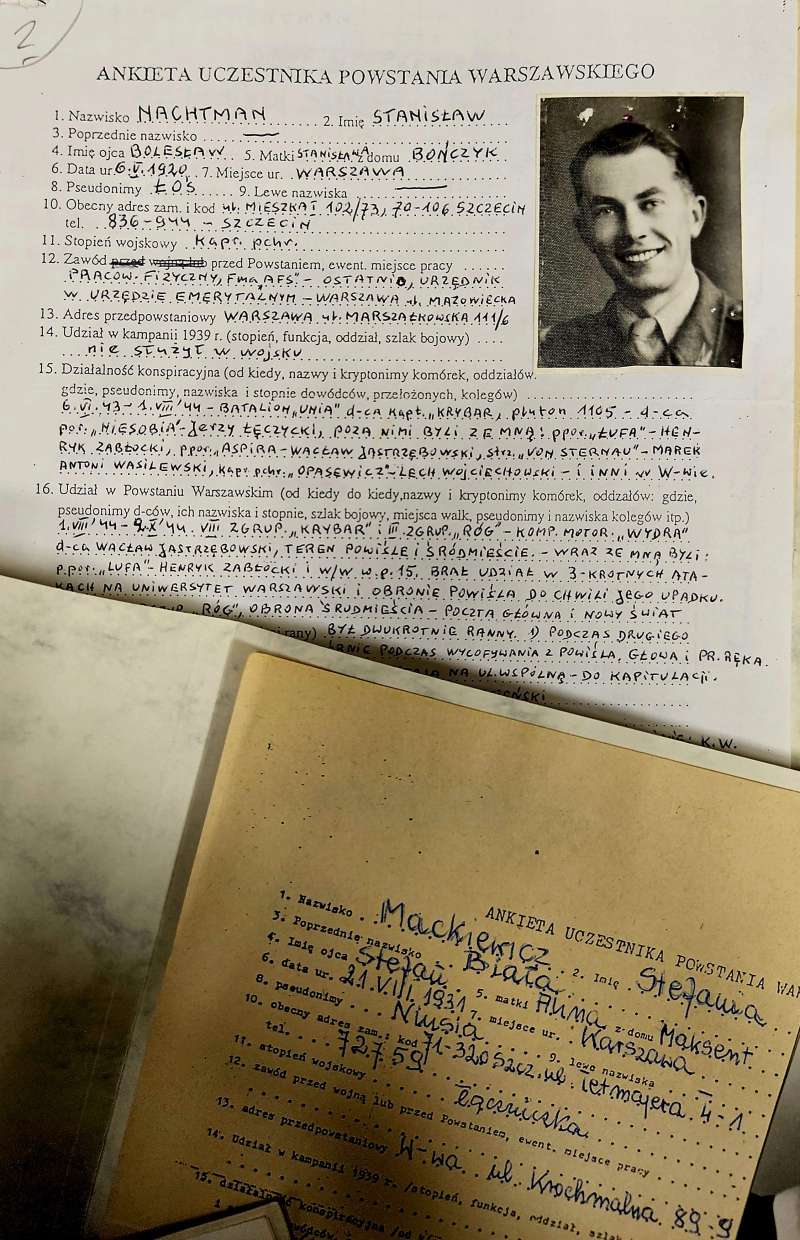 2
ANKIETA UCZESTNIKA POWSTANIA WARSZAWSKIEGO
1. Nazwisko NACHTMAN 2. Imię STANISŁAW
3. Poprzednie nazwisko
4. Imię ojca BOLESŁAW 5. Matki STANISŁAWA z domu BOŃCZYK
6. Data ur. 6.V.1920. 7. Miejsce ur. WARSZAWA
8. Pseudonimy ŁOŚ 9. Lewe nazwiska
10. Obecny adres zam. i kod ul. MIESZKAŁ 102/73, 70-106 SZCZECIN
tel. 836-944 – SZCZECIN
11. Stopień wojskowy Kapr. pchr.
12. Zawód przed wojną lub przed Powstaniem, ewent. miejsce pracy
PRACOW. FIZYCZNY, Fma „AFS" – OSTATNIO, URZĘDNIK
W URZĘDZIE EMERYTALNYM – WARSZAWA ul. MAZOWIECKA
13. Adres przedpowstaniowy WARSZAWA ul. MARSZAŁKOWSKA 111/6
14. Udział w kampanii 1939 r. (stopień, funkcja, oddział, szlak bojowy)
nie służył w wojsku
15. Działalność konspiracyjna (od kiedy, nazwy i kryptonimy komórek, oddziałów.
gdzie, pseudonimy, nazwiska i stopnie dowódców, przełożonych, kolegów)
6.VI.43 – 1.VIII'44 – BATALION „UNIA" d-ca Kpt. „KRYBAR, pluton 1105 – d-ca
por. „NIESOBIA" – JERZY ŁĘCZYCKI, POZA NIMI BYLI ZE MNĄ: ppor. „ŁUFA" – HEN-
RYK ZABŁOCKI, ppor. „ASPIRA – WACŁAW JASTRZĘBOWSKI, strz. „VON STERNAU" – MAREK
ANTONI WASILEWSKI, Kapr pchr. „OPASEWICZ" – LECH WOJCIECHOWSKI – i INNI w W-wie.
16. Udział w Powstaniu Warszawskim (od kiedy do kiedy,nazwy i kryptonimy komórek, oddzałów: gdzie,
pseudonimy d-ców, ich nazwiska i stopnie, szlak bojowy, miejsca walk, pseudonimy i nazwiska kolegów itp.)
1.VIII'44 – 2.X'44. VIII ZGRUP. „KRYBAR" i III ZGRUP. „RÓG" – KOMP. MOTOR. „WYDRA"
d-ca WACŁAW JASTRZĘBOWSKI, TEREN POWIŚLE i ŚRÓDMIEŚCIE. – WRAZ ZE MNĄ BYLI:
p.por. „LUFA" – HENRYK ZABŁOCKI i W/W w p. 15. BRAŁ UDZIAŁ W 3-KROTNYCH ATA-
KACH NA UNIWERSYTET WARSZAWSKI i OBRONIE POWIŚLA DO CHWILI JEGO UPADKU.
RÓG", OBRONA ŚRUDMIEŚCIA – POCZTA GŁÓWNA i NOWY ŚWIAT
i rany) BYŁ DWUKROTNIE RANNY. 1) PODCZAS DRUGIEGO
PODCZAS WYCOFYWANIA Z POWIŚLA, GŁOWA i PR. RĘKA.
NA UL. WSPÓLNĄ – DO KAPITULACJI.
K.W.
ANKIETA UCZESTNIKA POWSTANIA WAR
1. Nazwisko Mackiewicz 2. Imię Stefania
3. Poprzednie nazwisko Biała
4. Imię ojca Stefan 5. matki Anna z domu Maksent
6. data ur. 21.VIII.1931 7. miejsce ur. Warszawa
8. pseudonimy Niusia 9. lewe nazwiska
10. obecny adres zam. i kod 71-320 Szcz. ul. Tetmajera 4-1
tel. 72759
11. stopień wojskowy łączniczka
12. zawód przed wojną lub przed Powstaniem, ewent. miejsce pracy
13. adres przedpowstaniowy W-wa ul. Krochmalna 89-9
14. Udział w kampanii 1939 r. /stopień, funkcja, oddział, szlak
15. działalność konspiracyjna /od